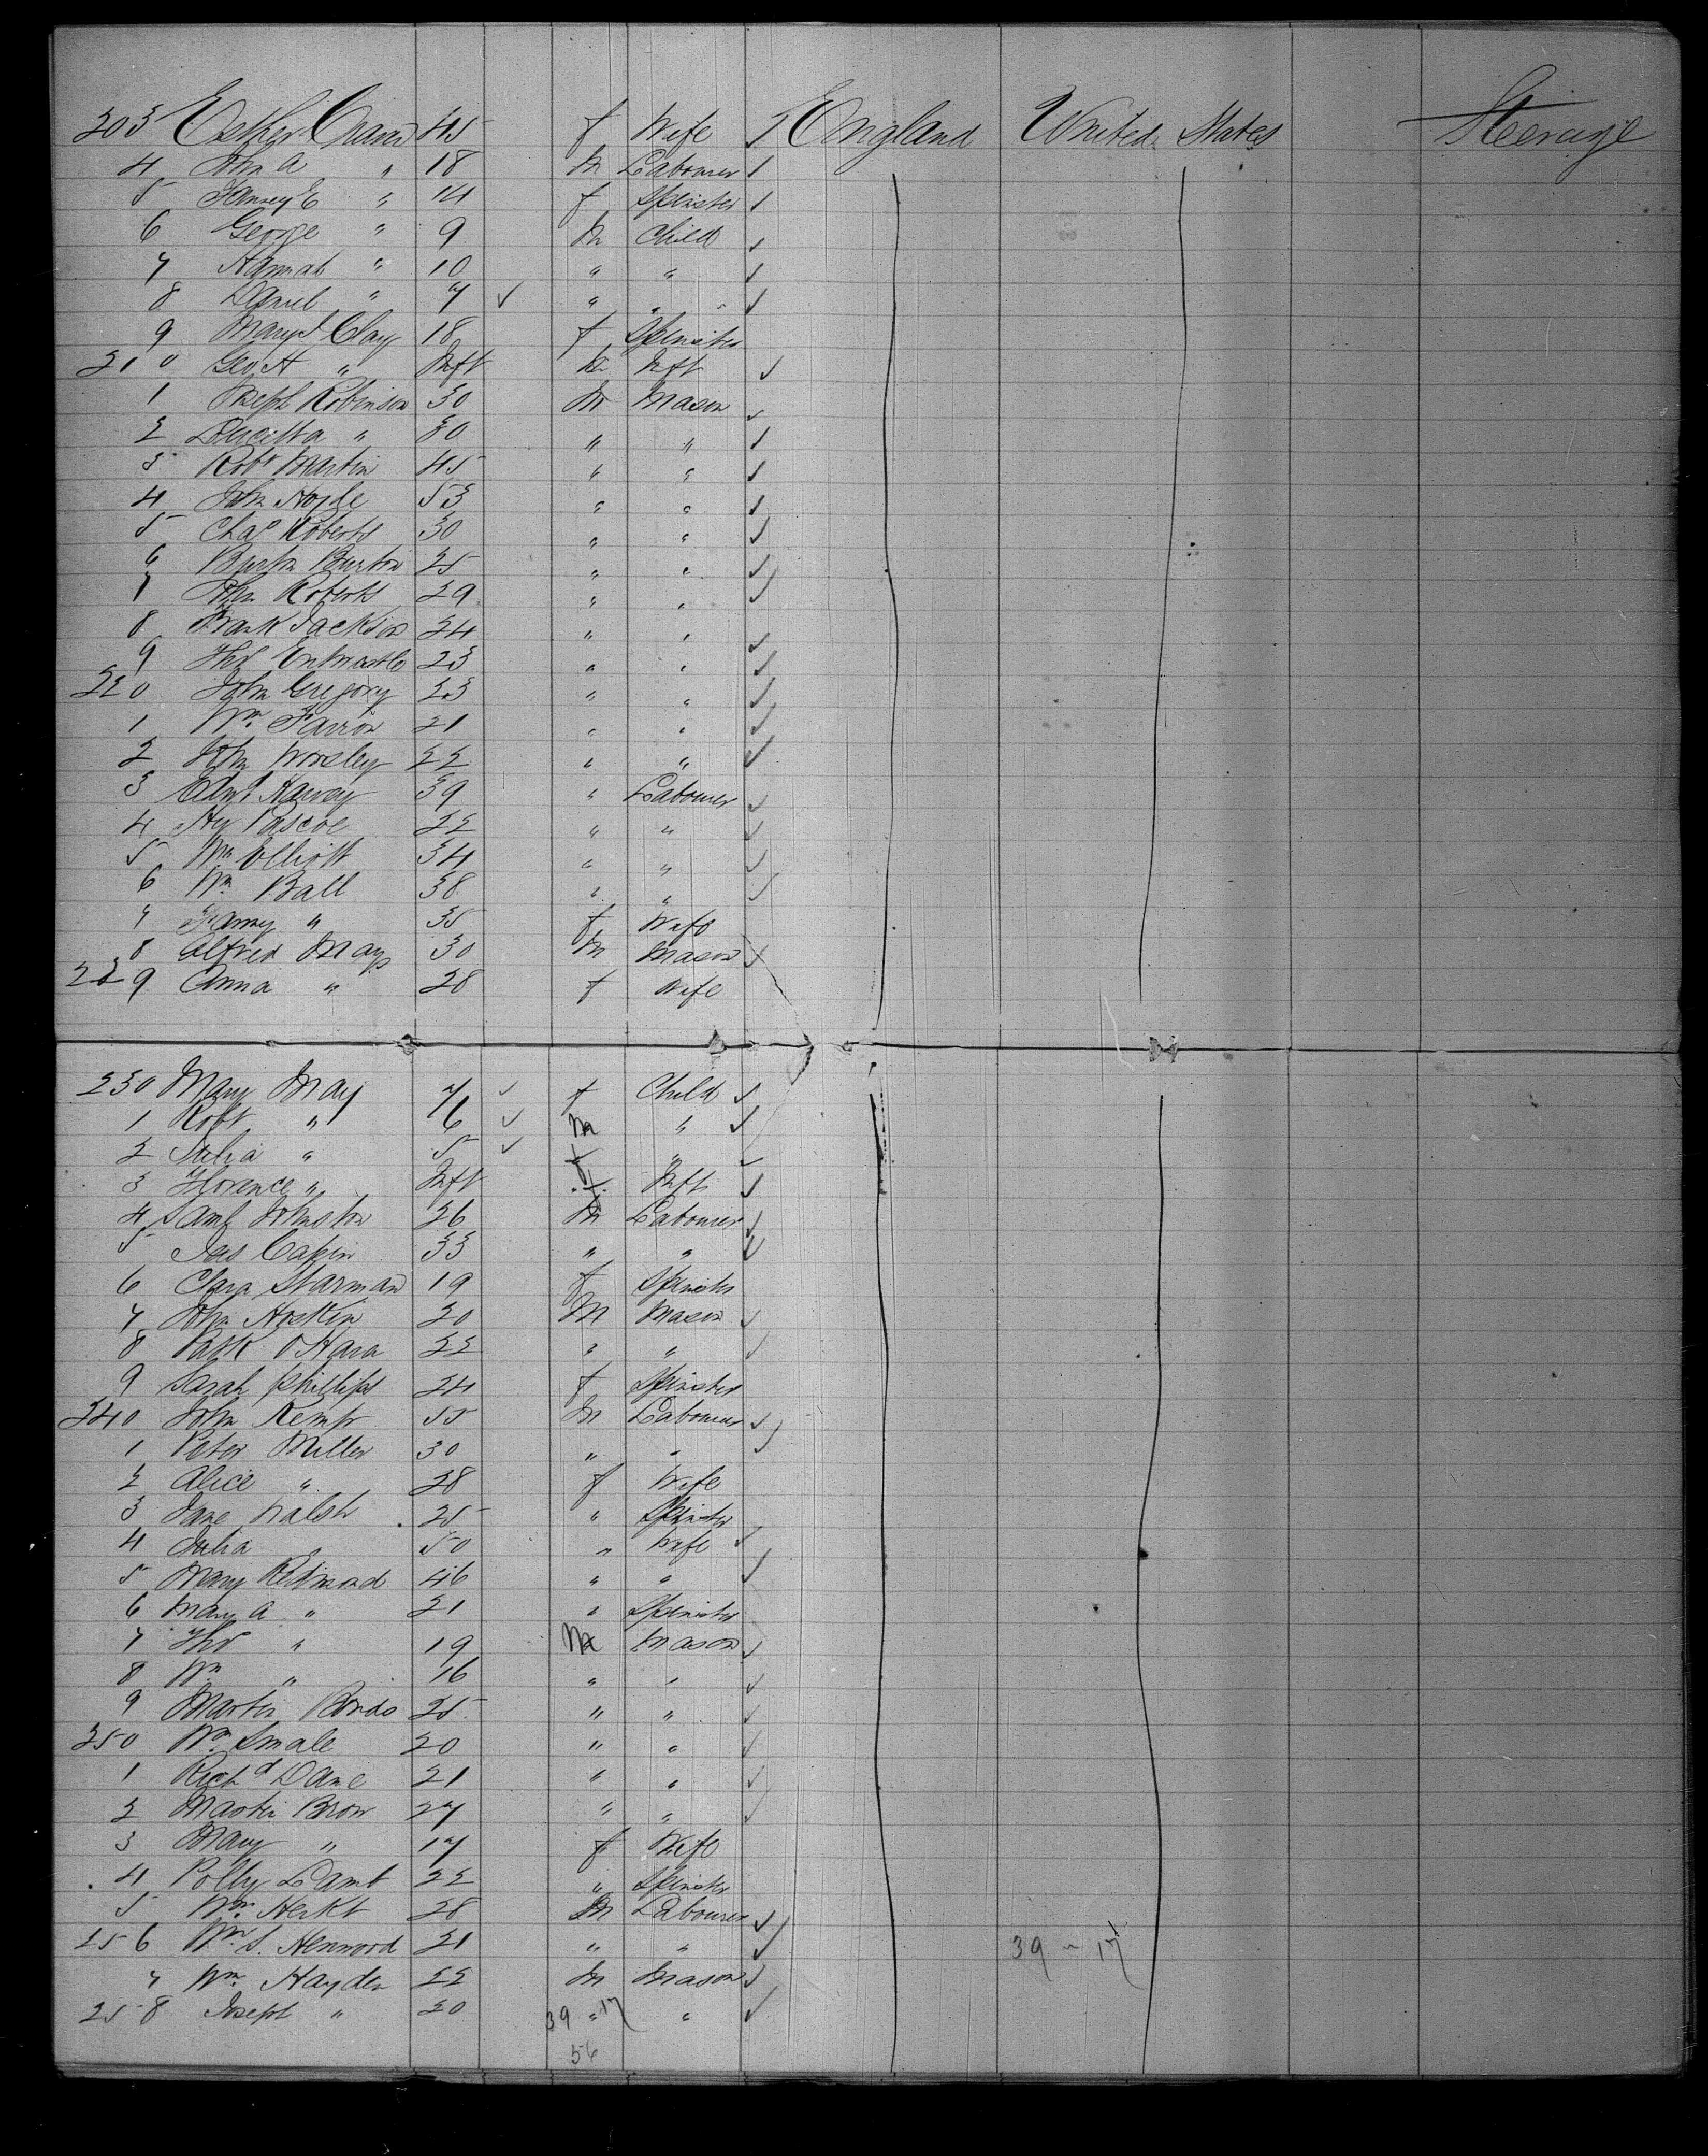 203 Esther 45 f Wife England United States Steerage
4 John A " 18 M Labourer
5 Fanny E " 14 f Spinster
6 George " 9 M Child
7 Hannah " 10 " "
8 Daniel " 7 " "
9 Mary Clay 18 f Spinster
210 Geo. H " Inft M Inft
1 Joseph Robinson 30 M Mason
2 " 30 " "
3 Robt Martin 45 " "
4 John Hoyle 53 " "
5 Chas Roberts 30 " "
6 Burton 25 " "
7 John Roberts 29 " "
8 Frank Jackson 24 " "
9 Thos Entwistle 23 " "
220 John Gregory 23 " "
1 Wm 21 " "
2 John Worsley 22 " "
3 Edwd Harvey 39 " Labourer
4 Hy Pascoe 22 " "
5 Wm Elliott 34 " "
6 Wm Ball 38 " "
7 Fanny " 35 f Wife
8 Alfred May 30 M Mason
229 Anna " 28 f Wife
230 Mary May 7 f Child
1 Robt " 6 M "
2 Julia " 5 f "
3 Florence " Inft f Inft
4 Saml Johnston 26 M Labourer
5 Jas 33 " "
6 Clara 19 f Spinster
7 John Hoskin 20 M Mason
8 Patk O'Hara 22 " "
9 Sarah Phillips 24 f Spinster
240 John Kemp 55 M Labourer
1 Peter Miller 30 " "
2 Alice " 28 f Wife
3 Jane Walsh 25 " Spinster
4 Julia " 50 " Wife
5 Mary Redmond 46 " "
6 Mary A " 21 " Spinster
7 Thos " 19 M Mason
8 Wm " 16 " "
9 Martin 25 " "
250 Wm Smale 20 " "
1 Richd Dane 21 " "
2 Martin Brow 27 " "
3 Mary " 17 f Wife
4 Polly Lamb 22 " Spinster
5 Wm 28 M Labourer
256 Wm S. Henwood 21 " "
39 - 17
7 Wm Hayden 22 M Mason
258 Joseph " 20 " "
39 17
56